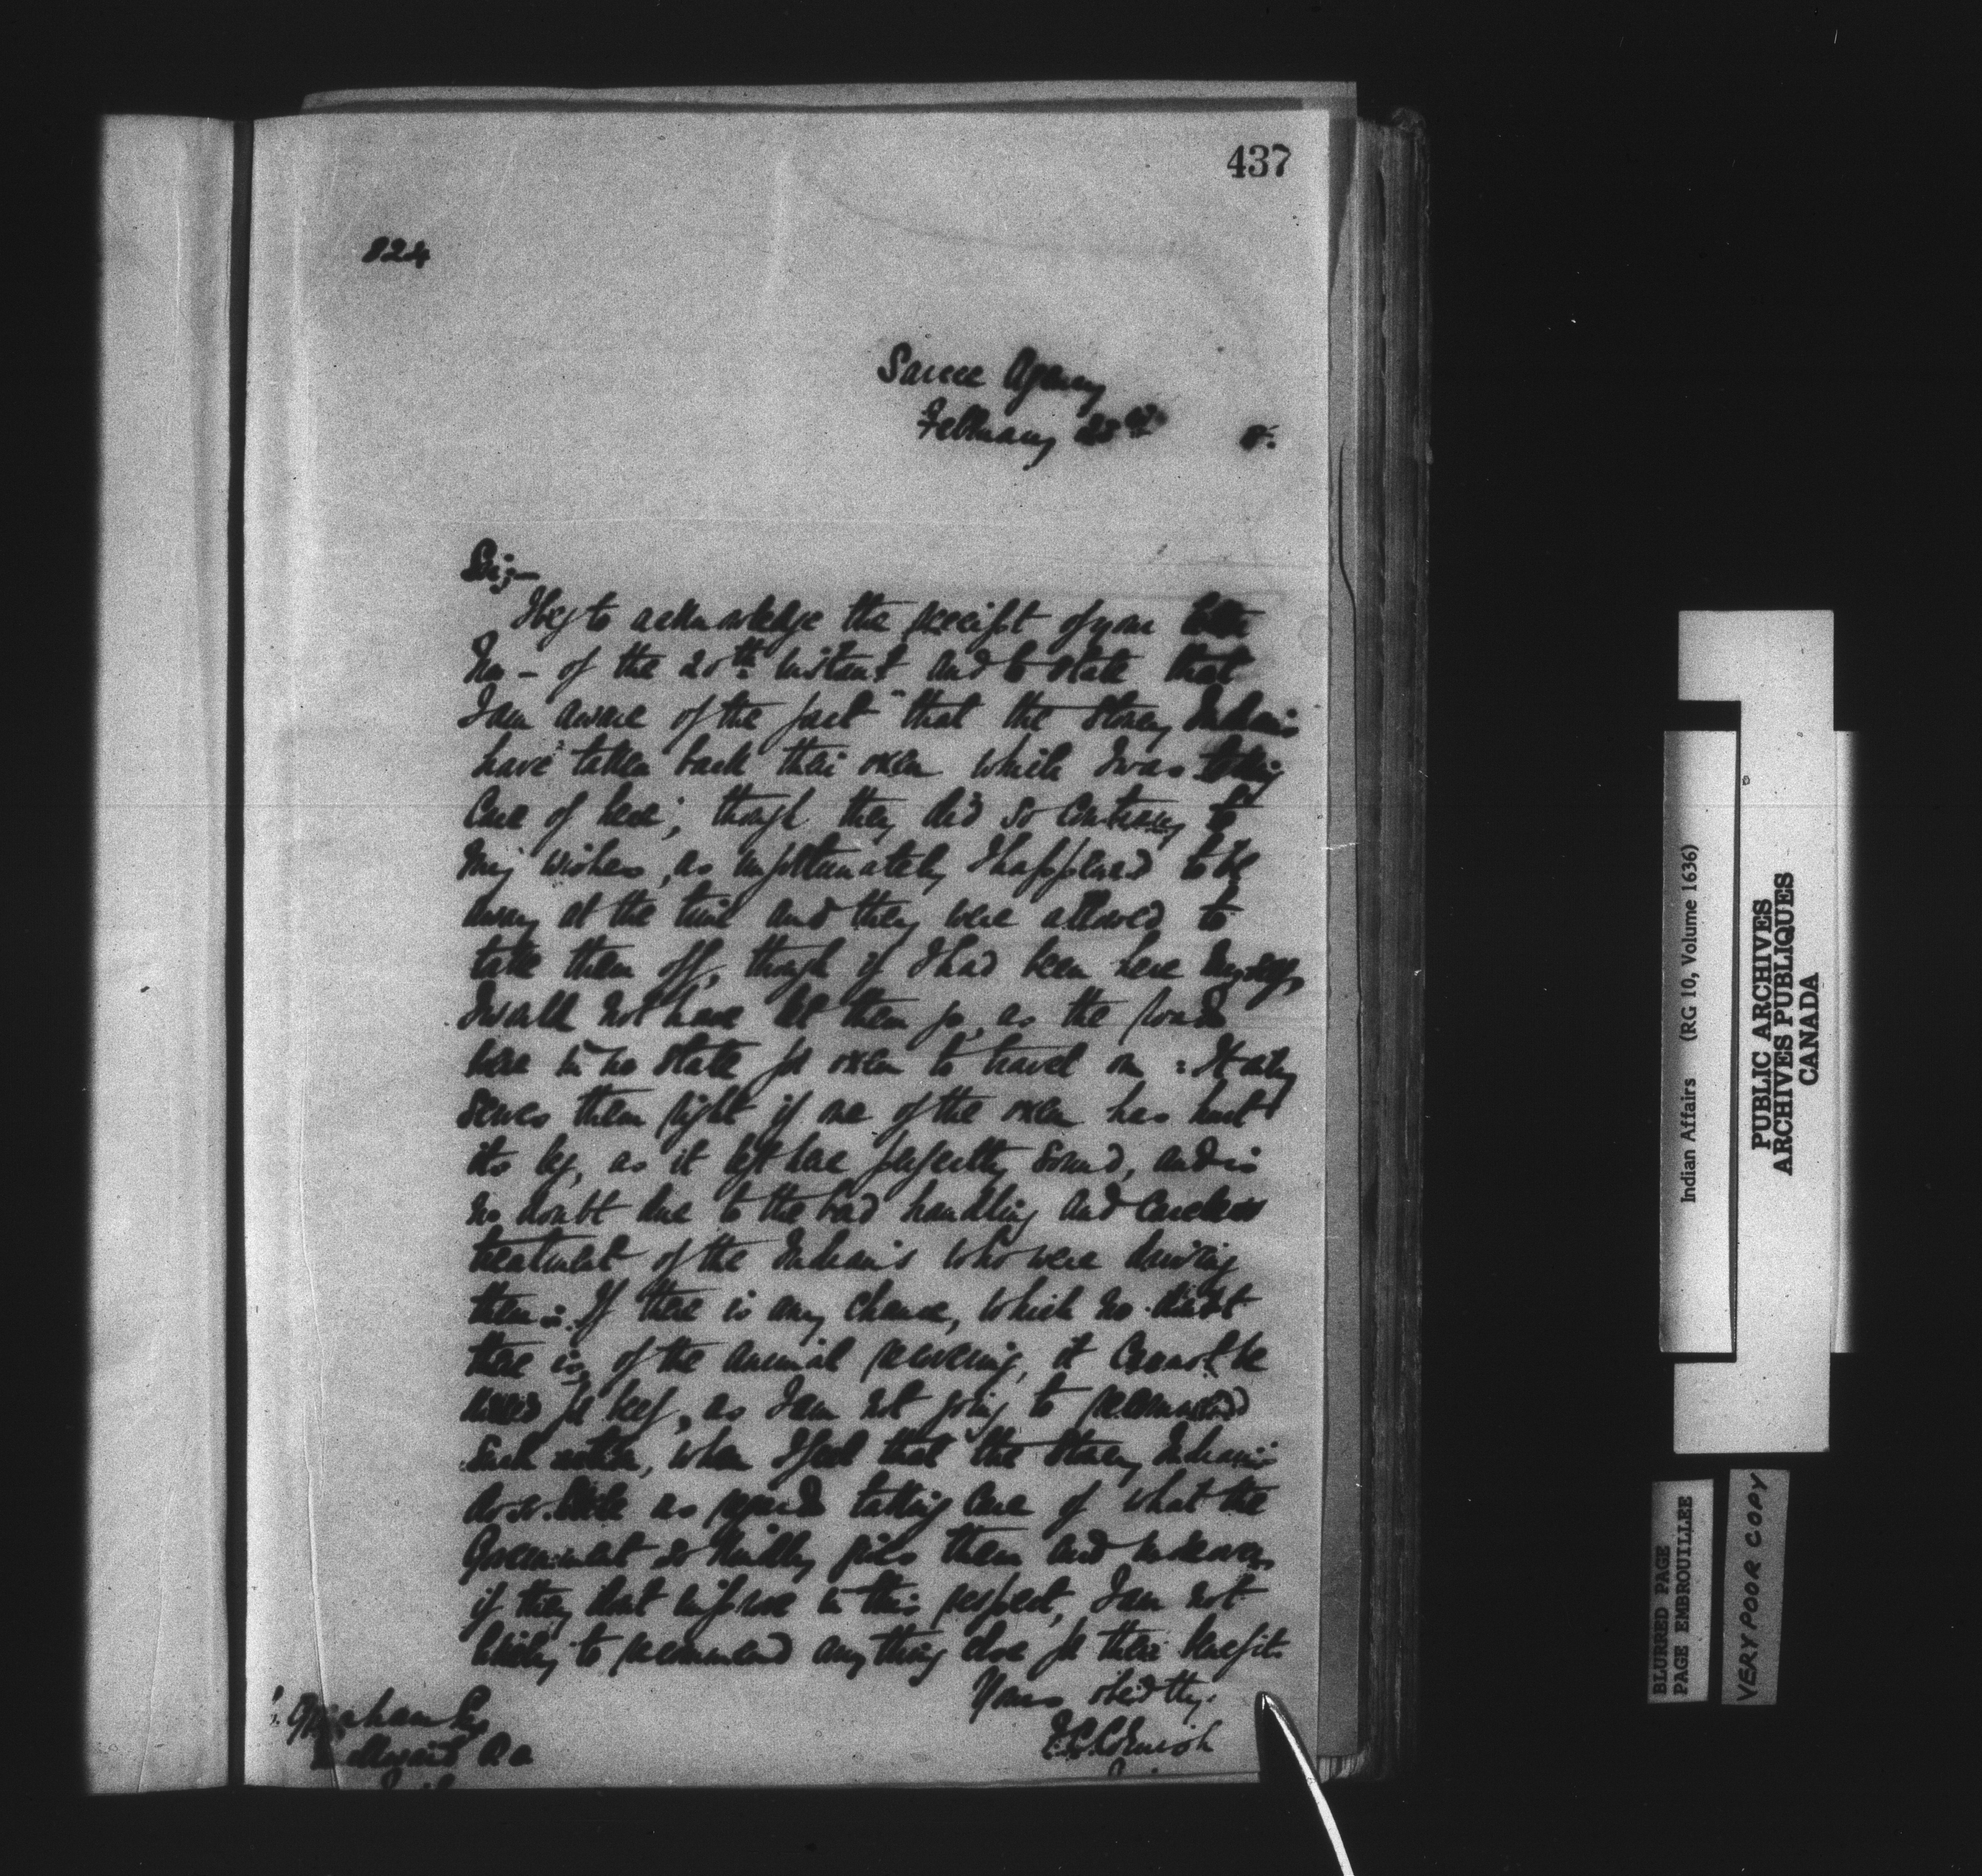 437
824
Sarcee Agency
February 25th 8.
Sir;-
I beg to acknowledge the receipt of your letter
No - of the 20th instant and to state that
I am aware of the fact that the Stoney Indians
have taken back their oxen which I was taking
care of here; though they did so contrary to
my wishes, as unfortunately I happened to be
away at the time and they were allowed to
take them off, though if I had been here myself,
I would not have let them go, as the roads
were in no state for oxen to travel on : It only
serves them right if one of the oxen has hurt
its leg, as it left here perfectly sound, and is
no doubt due to the bad handling and careless
treatment of the Indians who were driving
them :. If there is any chance, which no doubt
there is, of the animal recovering, it cannot be
killed for beef, as I am not going to recommend
such action, when I feel that the Stoney Indians
do so little as regards taking care of what the
Government so kindly gives them and
if they dont improve in this respect, I am not
likely to recommend anything else for their benefit.
Yours obidtly.
Graham Esq
F.C. Cornish
Indian Affairs (RG 10, Volume 1636)
PUBLIC ARCHIVES
ARCHIVES PUBLIQUES
CANADA
BLURRED PAGE
PAGE EMBROUILLEE
VERY POOR COPY